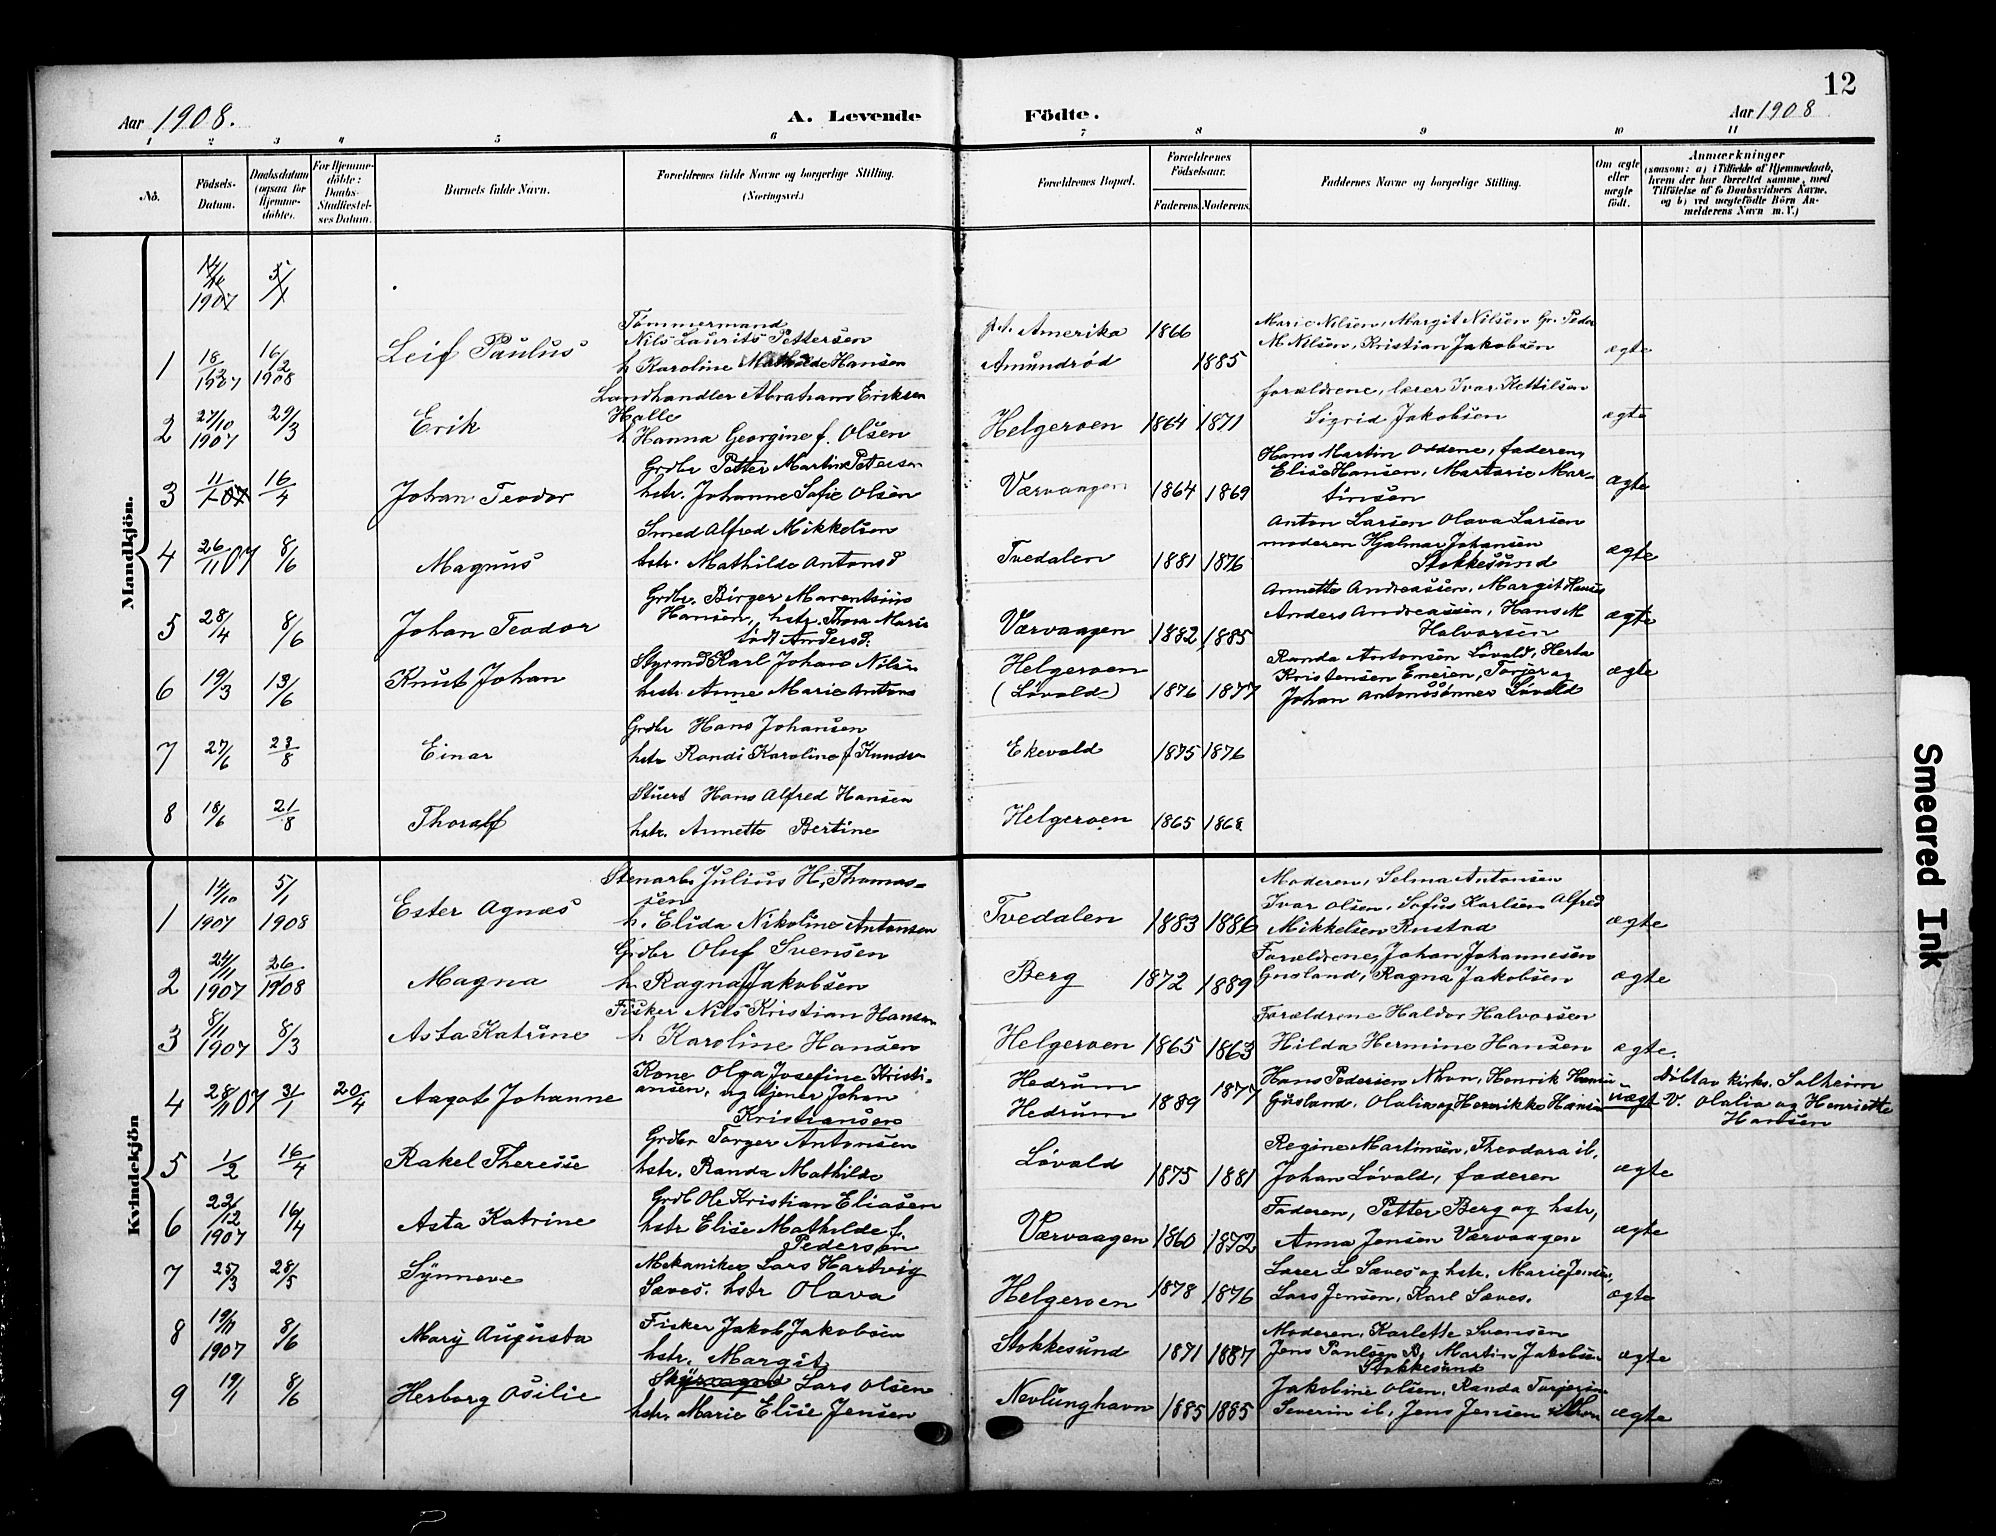 12
Aar 1908.
A. Levende
Födte.
Aar 1908
1 2 3 4 5 6 7 8 9 10 11
No.
Födsels-
Datum.
Daabsdatum
(ogsaa for
Hjemme-
döbte).
For Hjemme-
döbte:
Daabs-
Stadfæstel-
ses Datum.
Barnets fulde Navn.
Forældrenes fulde Navne og borgerlige Stilling.
(Næringsvei.)
Forældrenes Bopæl.
Forældrenes
Födselsaar.
Faderens. Moderens.
Faddernes Navne og borgerlige Stilling.
Om ægte
eller
uægte
födt.
Anmærkninger
(saasom: a) i Tilfælde af Hjemmedaab,
hvem der har forrettet samme, med
Tilföielse af to Daabsvidners Navne,
og b) ved uægtefödte Börn An-
melderens Navn m. V.)
Mandkjön.
14/10
1907
5/1
1
18/12
1907
16/2
1908
Leif Paulus
Tømmermand
Nils Laurits Pettersen
h Karoline Mathilde Hansen
p.t. Amerika
Amundrød
1866
1885
Marie Nilsen, Margit Nilsen Gr. Peder
M. Nilsen, Kristian Jakobsen
ægte
2
27/10
1907
29/3
Erik
Landhandler Abraham Eriksen
Halle
h Hanna Georgine f. Olsen
Helgeroen
1864 1871
forældrene, lærer Ivar Kettilsen
Sigrid Jakobsen
ægte
3
11/1 07
16/4
Johan Teodor
Grdbr Petter Martin Petersen
hstr. Johanne Sofie Olsen
Værvaagen
1864 1869
Hans Martin Oddene, faderen,
Elise Hansen, Martarie Mar-
tinsen
ægte
4
26/11 07
8/6
Magnus
Smed Alfred Mikkelsen
hstr. Mathilde Antonsd
Tvedalen
1881 1876
Anton Larsen Olava Larsen
moderen Hjalmar Johansen
Stokkesund
ægte
5
28/4
8/6
Johan Teodor
Grdbr. Birger Marentsius
Hansen, hstr. Thora Marie
født Andersd.
Værvaagen
1882 1885
Annette Andreassen, Margit Hansen
Anders Andreassen, Hans M
Halvorsen
ægte
6
19/3
13/6
Knut Johan
Styrmd Karl Johan Nilsen
hstr. Anne Marie Antons
Helgeroen
(Løvald)
1876 1877
Randa Antonsen Løvald, Herta
Kristensen Enesen, Torjer og
Johan Antonssønner Løvald
ægte
7
27/6
23/8
Einar
Grdbr Hans Johansen
hstr Randi Karoline f Knuds
Ekevald
1875 1876
8
18/6
21/8
Thoralf
Stuert Hans Alfred Hansen
hstr. Annette Bertine
Helgeroen
1865 1868
Kvindekjön
1
14/10
1907
5/1
1908
Ester Agnes
Stenarb. Julius H. Thomas-
sen
h. Elida Nikoline Antonsen
Tvedalen
1883 1886
Moderen, Selma Antonsen
Ivar Olsen, Sofus Karlsen Alfred
Mikkelsen Rustad
ægte
2
24/11
1907
26/1
1908
Magna
Grdbr Oluf Svensen
h. Ragna f Jakobsen
Berg
1872 1889
Forældrene, Johan Johannesen
Gusland, Ragna Jakobsen
ægte
3
8/11
1907
8/3
Asta Katrine
Fisker Nils Kristian Hansen
h Karoline Hansen
Helgeroen
1865 1863
Forældrene Haldor Halvorsen
Hilda Hermine Hansen
ægte.
4
28/11 07
3/1
20/4
Aagot Johanne
Kone Olga Josefine Kristi-
ansen, ug tjener Johan
Kristiansen
Hedrum
Hedrum
1889 1877
Hans Pedersen Nhvn, Henrik Hansen
Gusland, Olalia og Henrikke Hansen
uægt
Døbt av kirks. Solheim
V. Olalia og Henriette
Hansen
5
1/2
16/4
Rakel Theresse
Grdbr Torger Antonsen
hstr. Randa Mathilde
Løvald
1875 1881
Regine Martinsen, Theodora ib,
Johan Løvald, faderen
ægte
6
22/12
1907
16/4
Asta Katrine
Grdb Ole Kristian Eliasen
hstr Elise Mathilde f.
Pedersen
Værvaagen
1860 1872
Faderen, Petter Berg og hstr,
Anna Jensen Værvaagen
ægte
7
25/3
28/5
Synneve
Mekaniker Lars Hartvig
Sæves. hstr Olava
Helgeroen
1878 1876
Lærer L Sæves og hstr. Marie Jensen,
Lars Jensen, Karl Sæves.
ægte
8
19/11
1907
8/6
Mary Augusta
Fisker Jakob Jakobsen
hstr. Margit
Stokkesund
1871 1887
Moderen, Karlette Svensen
Jens Paulsen B, Martin Jakobsen
Stokkesund
ægte
9
19/1
8/6
Herborg Osilie
Lars Olsen
hstr. Marie Elise Jensen
Nevlunghavn
1885 1885
Jakobine Olsen, Randa Torjersen
Severin ib, Jens Jensen Nhvn
ægte
Smeared Ink